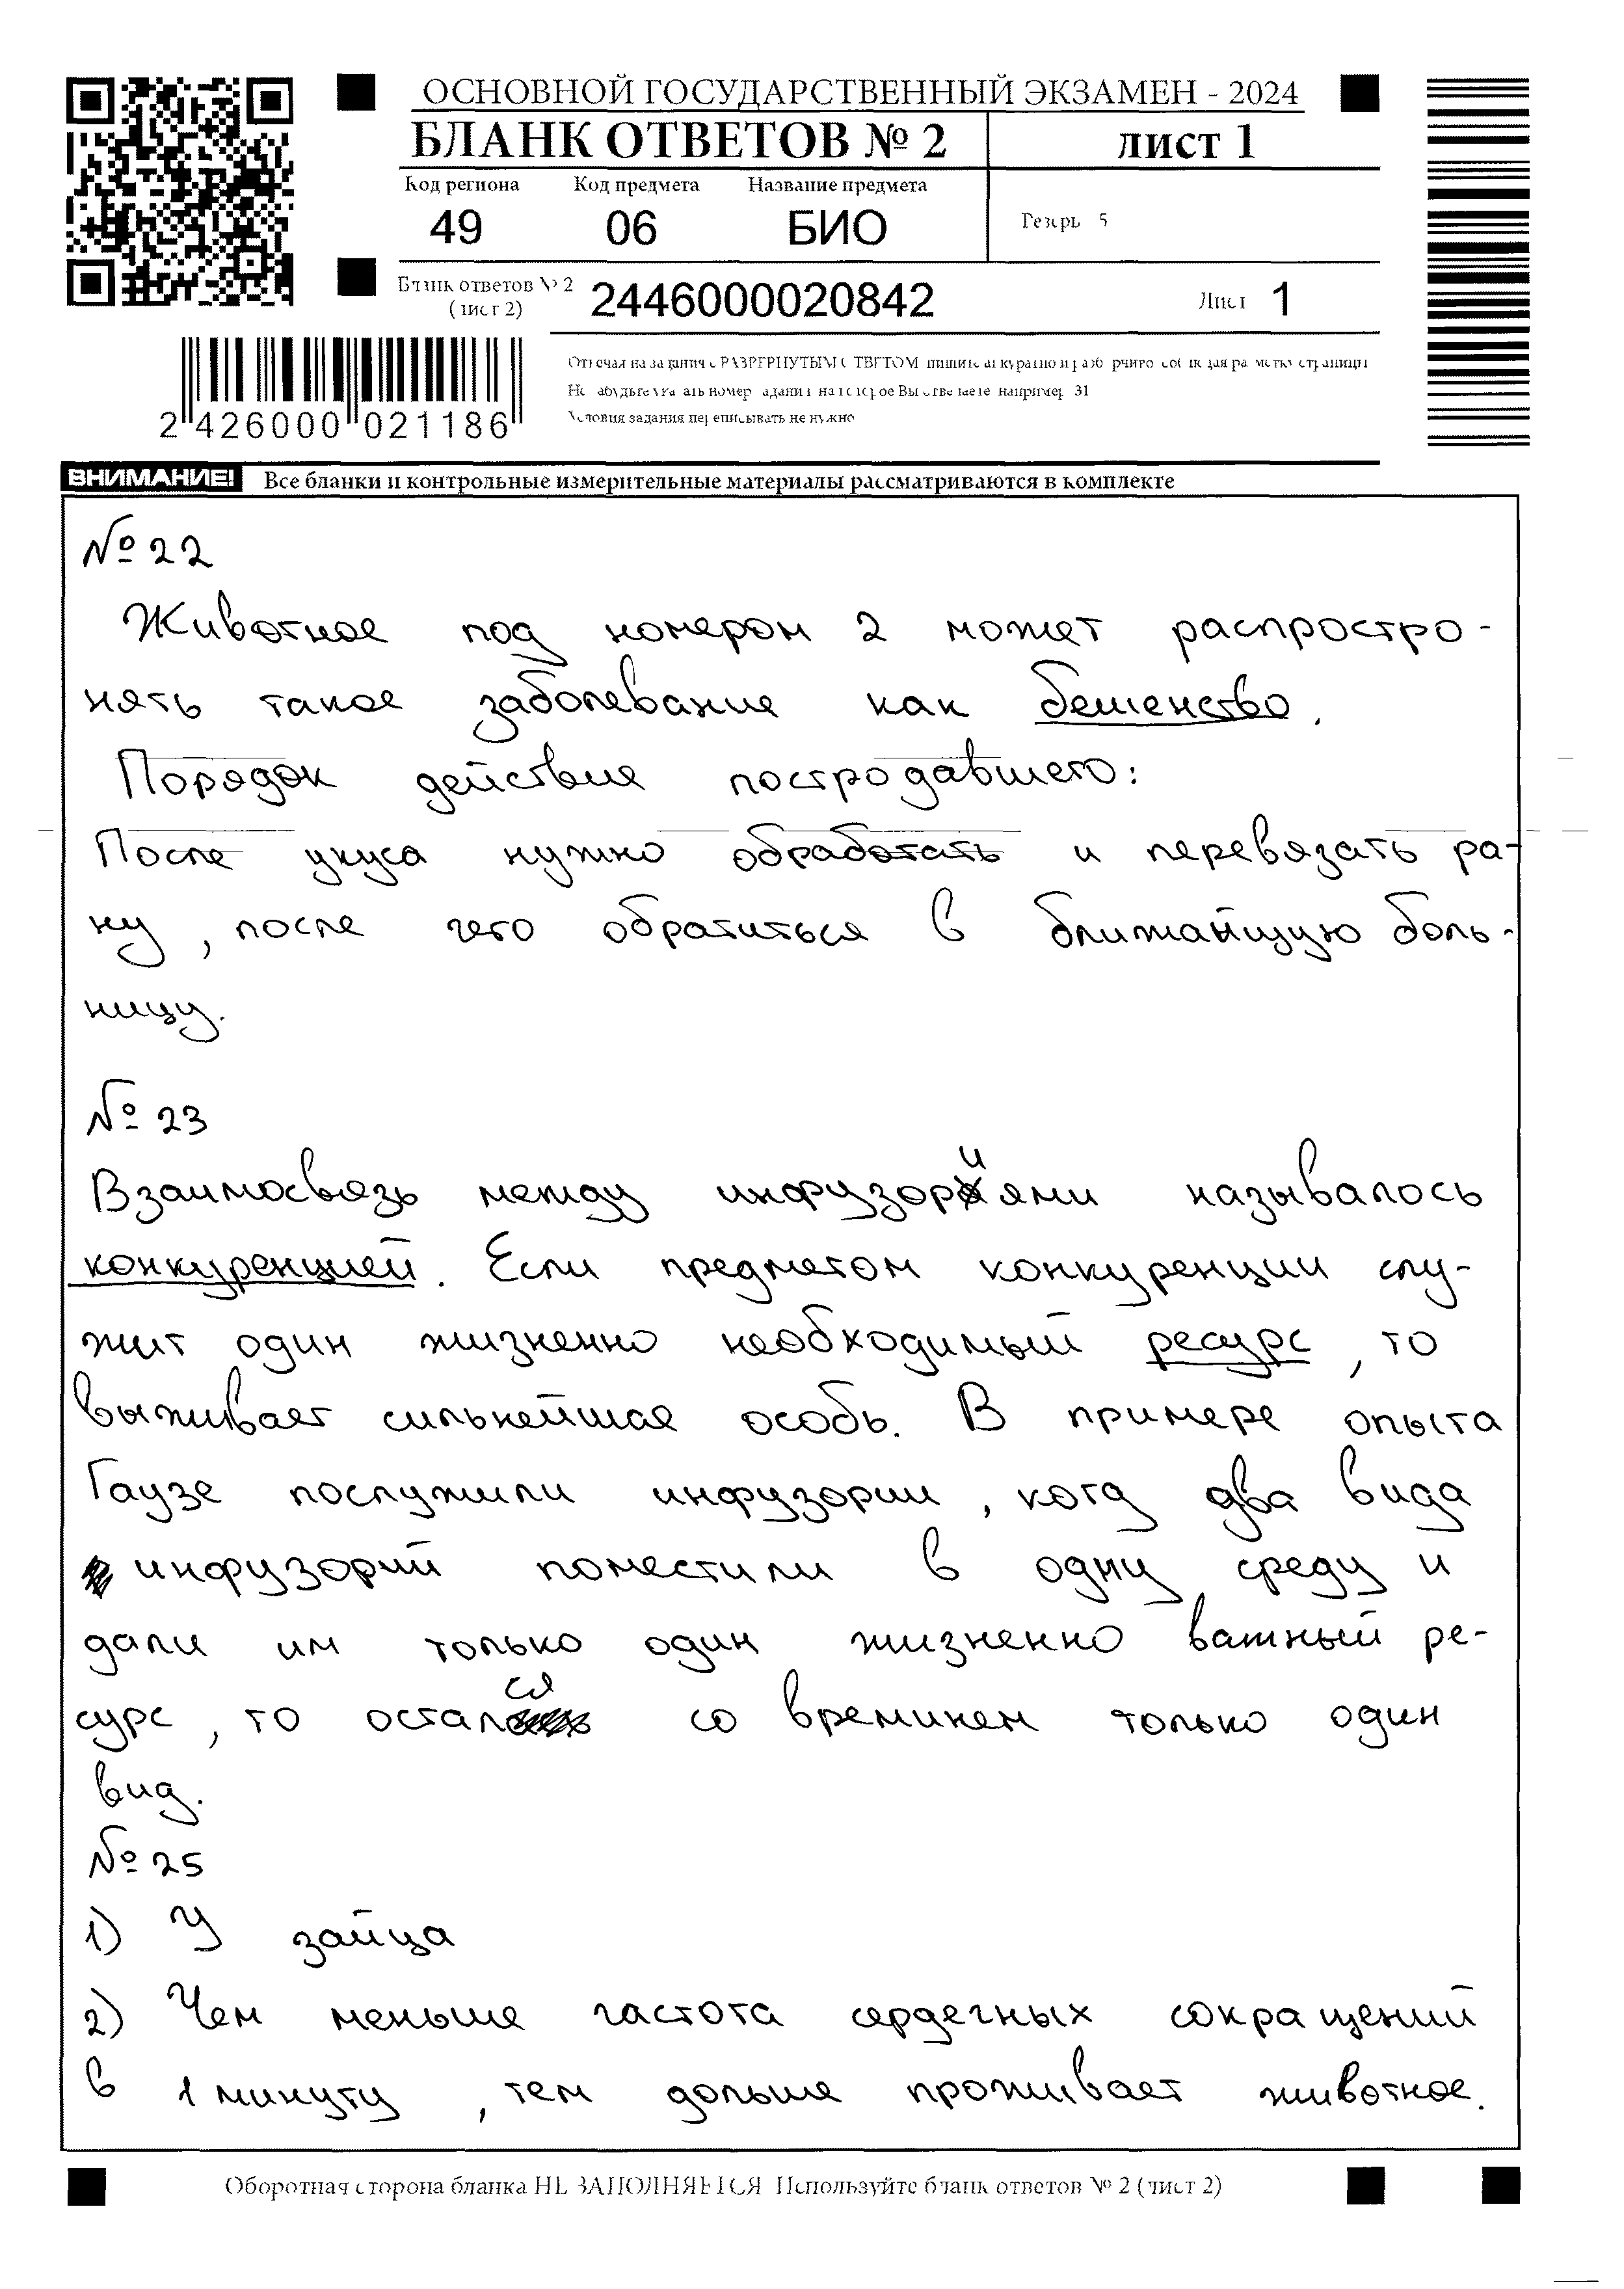 ОСНОВНОЙ ГОСУДАРСТВЕННЫЙ ЭКЗАМЕН - 2024
БЛАНК ОТВЕТОВ № 2
лист 1
Код региона Код предмета Название предмета
49 06 БИО
Резерв 5
Бланк ответов № 2
(лист 2)
2446000020842
Лист 1
2 426000 021186
Отвечая на задания с РАЗВЕРНУТЫМ ОТВЕТОМ пишите аккуратно и разборчиво соблюдая разметку страницы
Не забудьте указать номер задания на которое Вы отвечаете например 31
Условия задания переписывать не нужно
ВНИМАНИЕ! Все бланки и контрольные измерительные материалы рассматриваются в комплекте
№ 22
Животное под номером 2 может распростро-
нять такое заболевание как бешенство.
Порядок действие постродавшего:
После укуса нужно обработать и перевязать ра-
ну, после чего обратиться в ближайщую боль-
ницу.
№ 23
Взаимосвязь между инфузориями называлось
конкуренцией. Если предметом конкуренции слу-
жит один жизненно необходимый ресурс, то
выживает сильнейшая особь. В примере опыта
Гаузе послужили инфузории, когд два вида
инфузорий поместили в одну среду и
дали им только один жизненно важный ре-
сурс, то остался со временем только один
вид.
№ 25
1) У зайца
2) Чем меньше частота сердечных сокращений
в 1 минуту, тем дольше проживает животное.
Оборотная сторона бланка НЕ ЗАПОЛНЯЕТСЯ Используйте бланк ответов № 2 (лист 2)